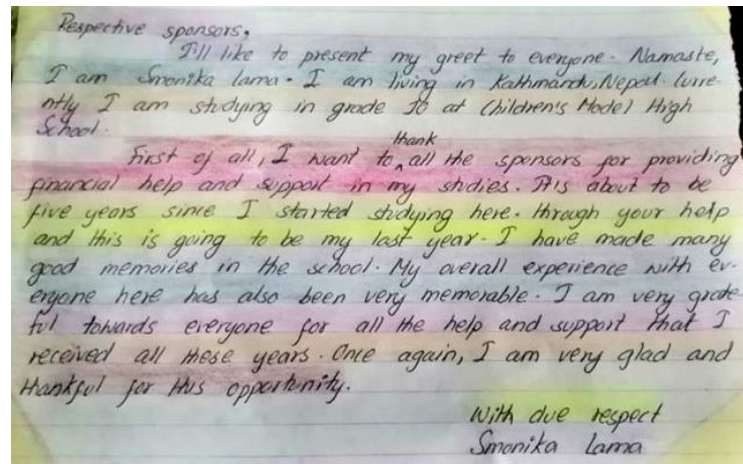 Respective sponsors,
I'll like to present my greet to everyone. Namaste,
I am Smonika lama. I am living in Kathmandu, Nepal. Curre-
ntly I am studying in grade 10 at Children's Model High
School.
First of all, I want to thank all the sponsors for providing
financial help and support in my studies. It is about to be
five years since I started studying here. through your help
and this is going to be my last year. I have made many
good memories in the school. My overall experience with ev-
eryone here has also been very memorable. I am very grate-
ful towards everyone for all the help and support that I
received all these years. Once again, I am very glad and
thankful for this opportunity.
With due respect
Smonika Lama